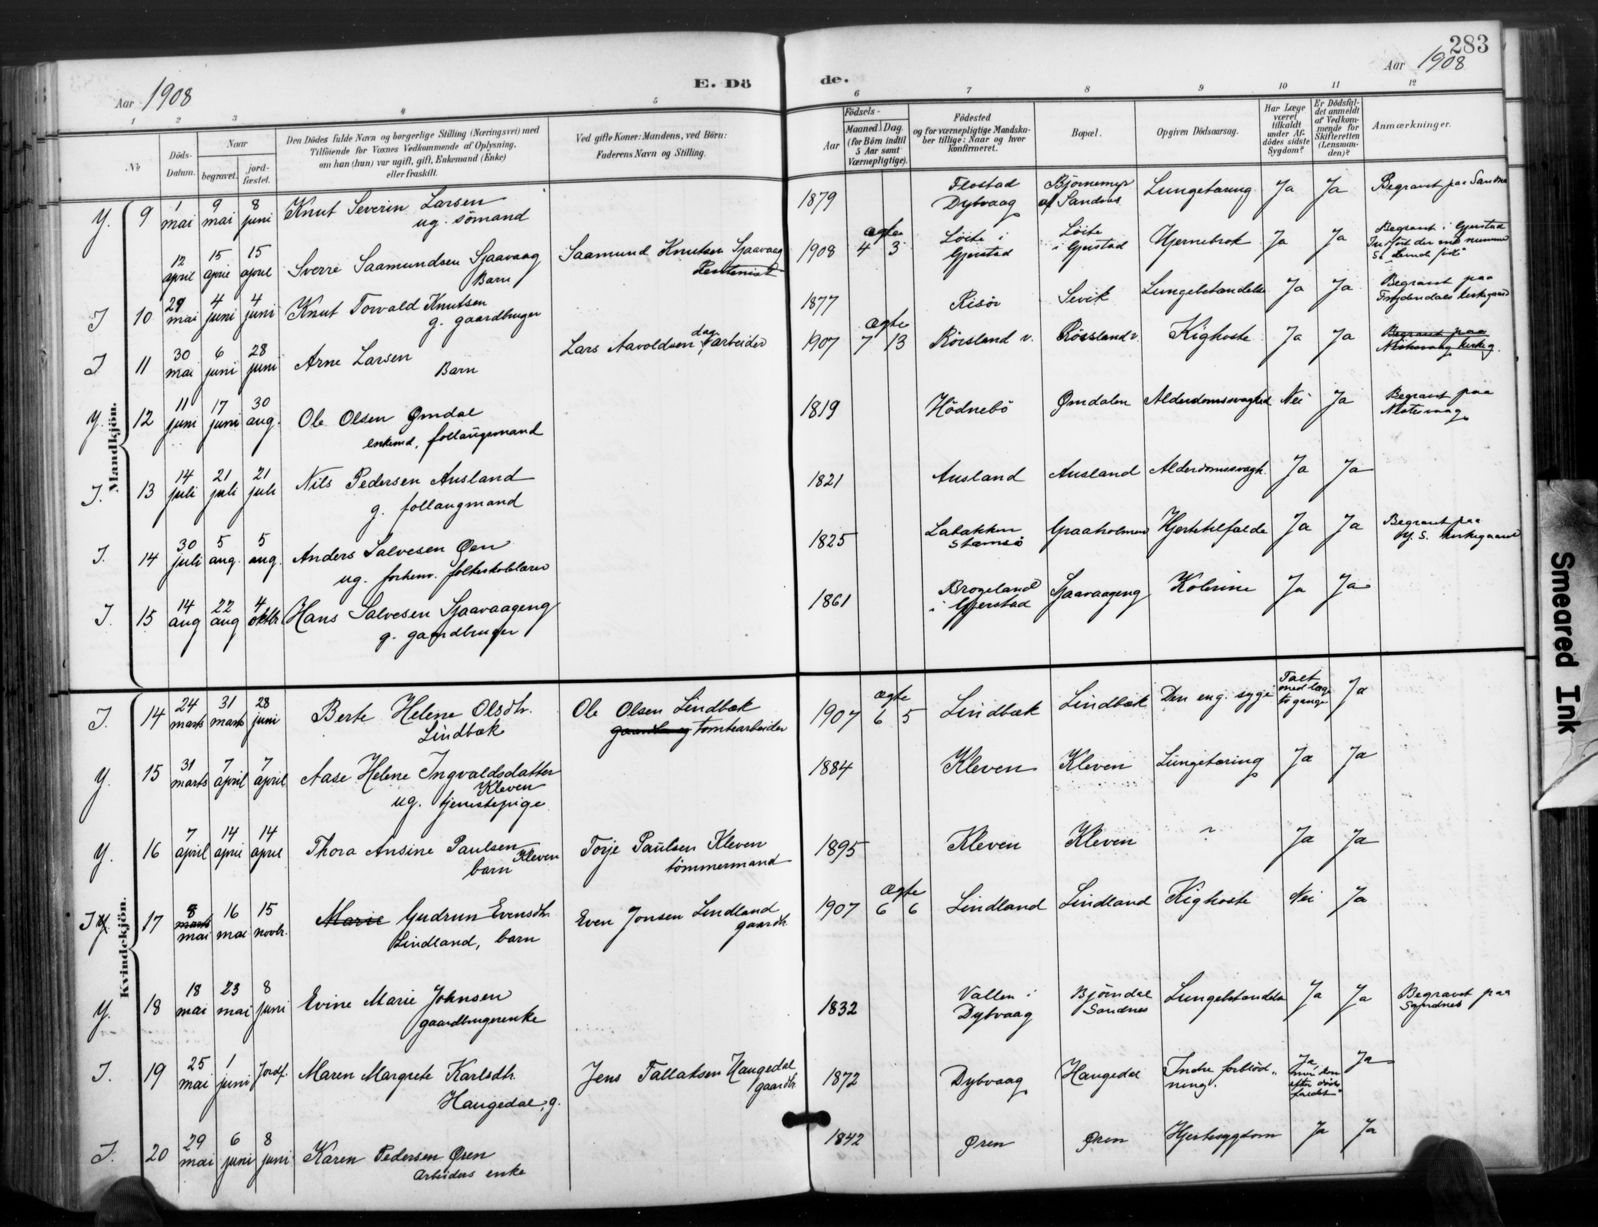 283
Aar 1908 E. Dö de. Aar 1908
1 2 3 4 5 6 7 8 9 10 11 12
№ Döds-Datum. Naar begravet. jord-fæstet. Den Dödes fulde Navn og borgerlige Stilling (Næringsvei) med Tilföiende for Voxnes Vedkommende af Oplysning, om han (hun) var ugift, gift, Enkemand (Enke) eller fraskilt. Ved gifte Koner: Mandens, ved Börn: Faderens Navn og Stilling. Födsels- Aar Maaned. Dag. (for Börn indtil 5 Aar samt Værnepligtige). Födested og for værnepligtige Mandskaber tillige: Naar og hvor konfirmeret. Bopæl. Opgiven Dödsaarsag. Har Læge været tilkaldt under Afdödes sidste Sygdom? Er Dödsfaldet anmeldt af Vedkommende for Skifteretten (Lensmanden)? Anmærkninger.
Mandkjön.
Y. 9 1 mai 9 mai 8 juni Knut Severin Larsen ug. sömand 1879 Flostad Dybvaag Bjørnemyr af Sandnes Lungetæring Ja Ja Begravet paa Sandnes
12 april 15 april 15 april Sverre Saamundsen Sjaavaag Barn Saamund Knutsen Sjaavaag 1908 ægte 4 3 Løite i Gjerstad Løite i Gjerstad Hjernebrok Ja Ja Begravet i Gjerstad
I 10 29 mai 4 juni 4 juni Knut Torvald Knutsen g. gaardbruger 1877 Risör Sevik Lungebetændelse Ja Ja Begravet paa Frydendals kirkegaard
I 11 30 mai 6 juni 28 juni Arne Larsen Barn Lars Aavoldsen dagarbeider 1907 ægte 7 13 Røisland v. Røissland v. Kighoste Ja Ja Begravet paa
Y. 12 11 juni 17 juni 30 aug. Ole Olsen Ømdal enkemd. follaugsmand 1819 Hödnebö Ømdalen Alderdomssvaghed Nei Ja Begravet paa
I. 13 14 juli 21 juli 21 juli Nils Pedersen Ausland g. follaugmand 1821 Ausland Ausland Alderdomssvagh. Ja Ja
I. 14 30 juli 5 aug. 5 aug. Anders Salvesen Øen ug. forhenv. folkeskolelærer 1825 Hjerteslag Ja Ja Begravet paa Y. S. kirkegaard
I. 15 14 aug 22 aug 4 oktbr Hans Salvesen Sjaavaageng g. gaardbruger 1861 Brogeland i Gjerstad Sjaavaageng Kolerine Ja Ja
Kvindekjön.
I. 14 24 marts 31 marts 28 juni Berte Helene Olsdtr. Lindbæk Ole Olsen Lindbæk tomtearbeider 1907 ægte 6 5 Lindbæk Lindbæk Den eng. syge Talt med læge to gange Ja
Y. 15 31 marts 7 april 7 april Aase Helene Ingvaldsdatter Kleven ug. tjenestepige 1884 Kleven Kleven Lungetæring Ja Ja
Y. 16 7 april 14 april 14 april Thora Ansine Paulsen Kleven barn Torje Paulsen Kleven tömmermand 1895 Kleven Kleven ? Ja Ja
I 17 8 marts mai 16 mai 15 novbr. Marie Gudrun Evensdtr. Lindland, barn Even Jonsen Lindland gaardb. 1907 ægte 6 6 Lindland Lindland Kighoste Nei Ja
Y. 18 18 mai 23 mai 8 juni Evine Marie Johnsen gaardbrugerenke 1832 Vallen i Dybvaag Bjørndal Sandnes Lungebetændelse Ja Ja Begravet paa Sandnes
I. 19 25 mai 1 juni Jordf. Maren Margrete Karlsdtr. Haugedal, g. Jens Tallaksen Haugedal gaardb. 1872 Dybvaag Haugedal Indre forblödning. Ja Ja
I. 20 29 mai 6 juni 8 juni Karen Pedersen Øren Arbeiders enke 1842 Øren Øren Hjertesygdom Ja Ja
Smeared Ink